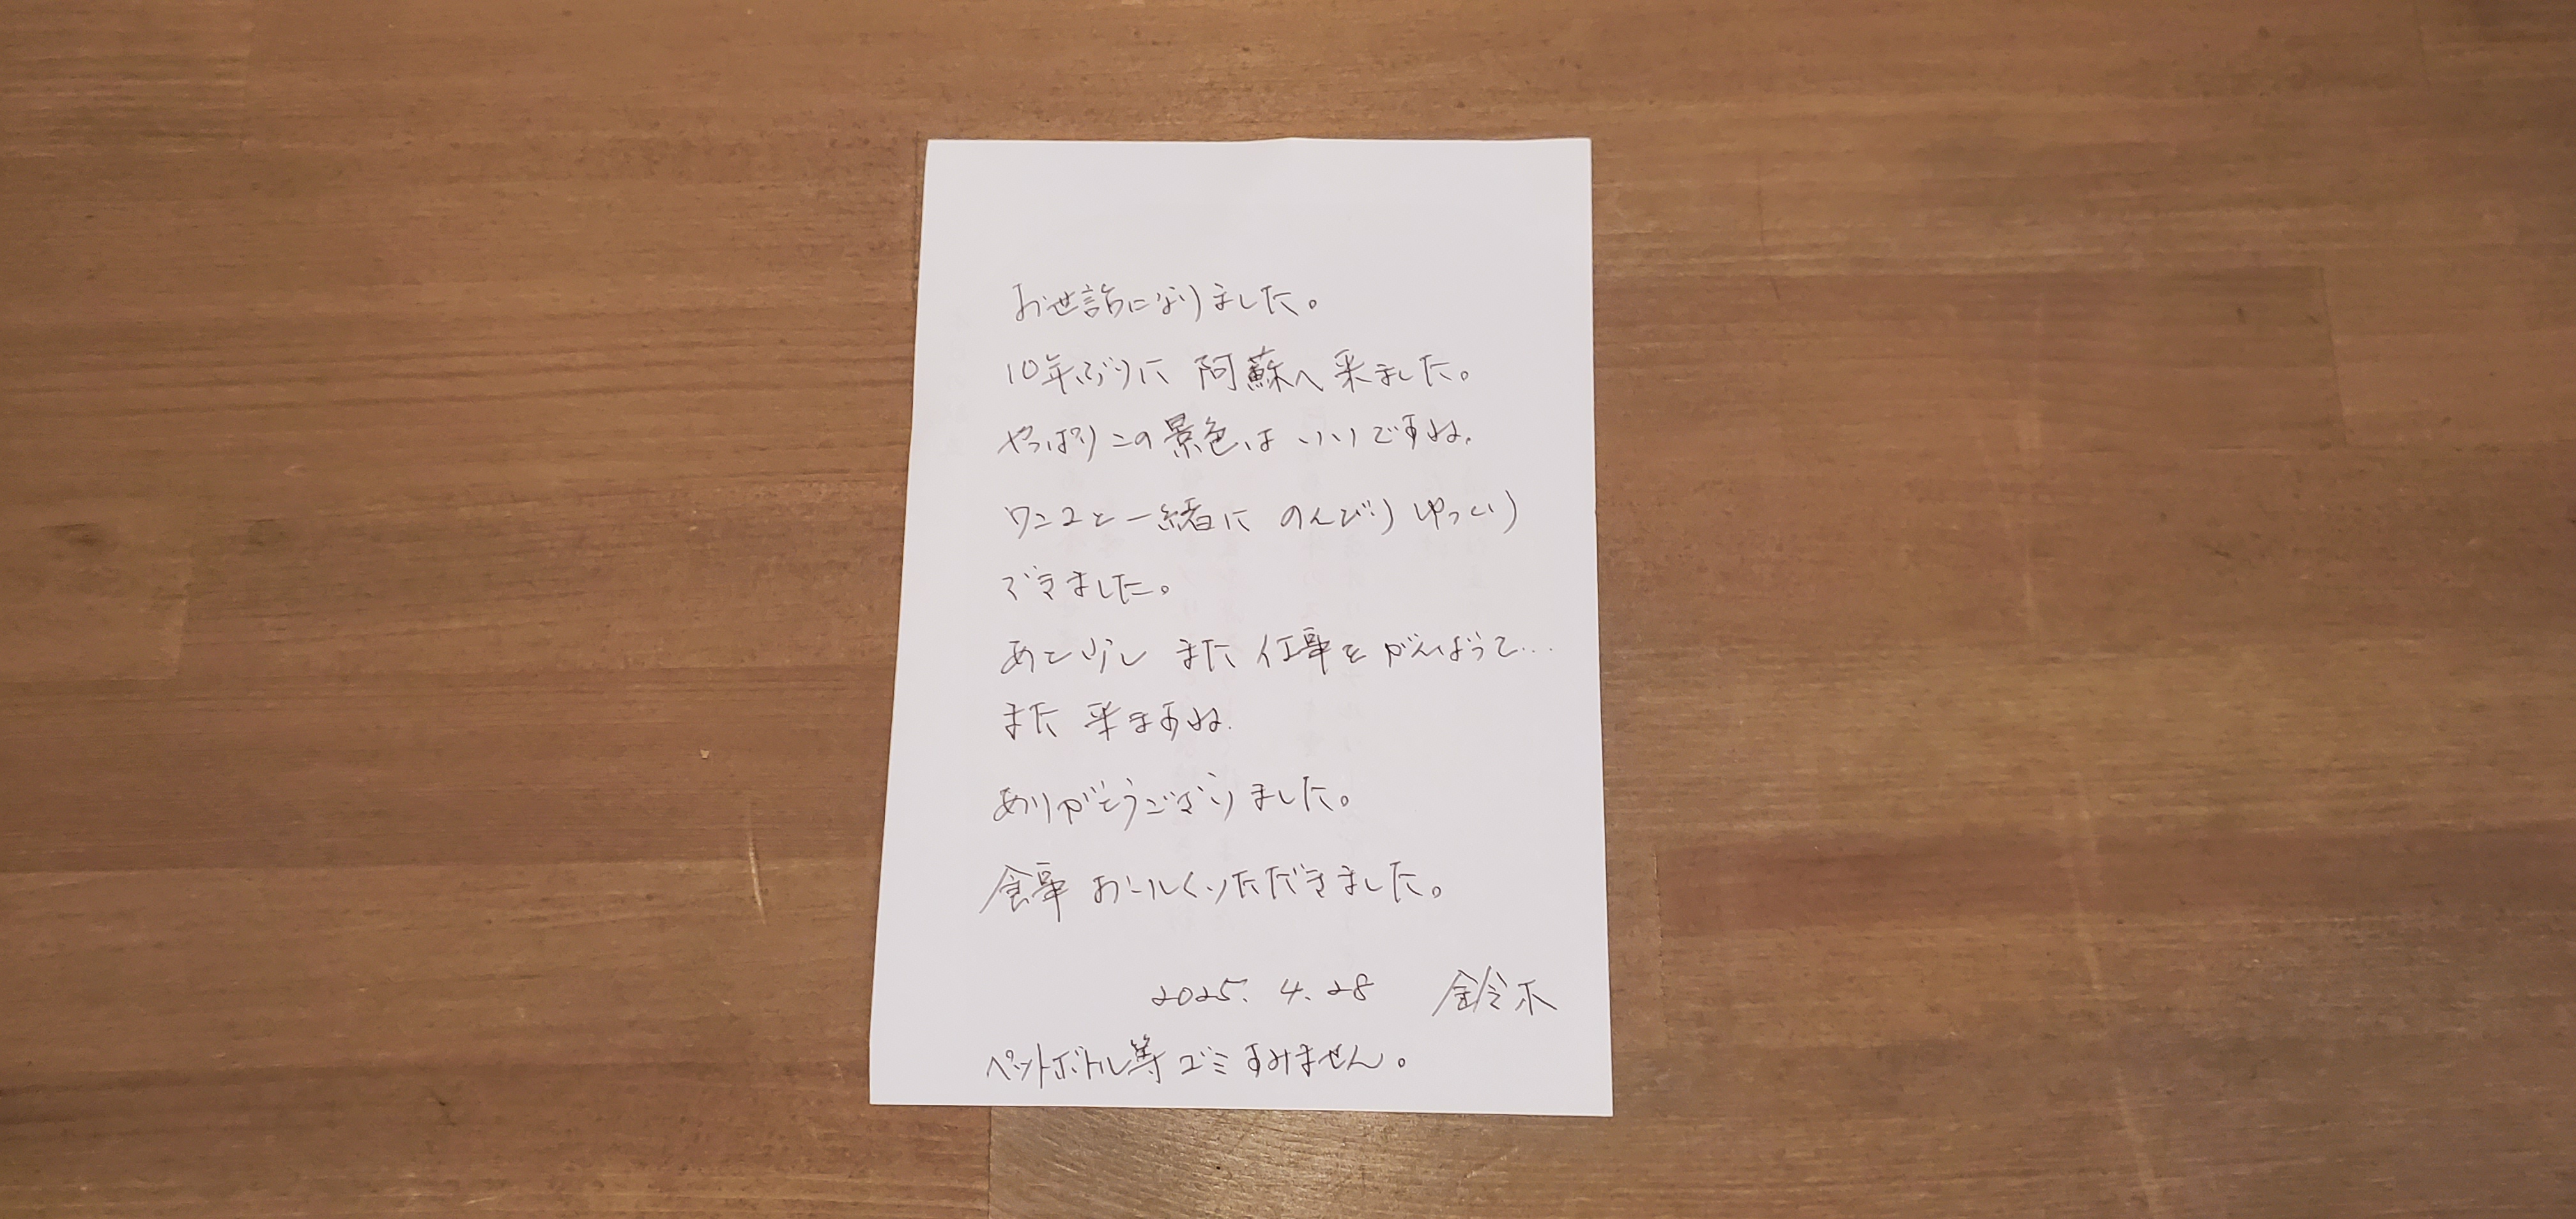 お世話になりました。
10年ぶりに 阿蘇へ来ました。
やっぱりこの景色はいいですね.
ワンコと一緒に のんびりゆっくり
できました。
あと少し また 仕事をがんばって…
また 来ますね.
ありがとうございました。
食事 おいしくいただきました。
2025. 4. 28 鈴木
ペットボトル等ゴミすみません。